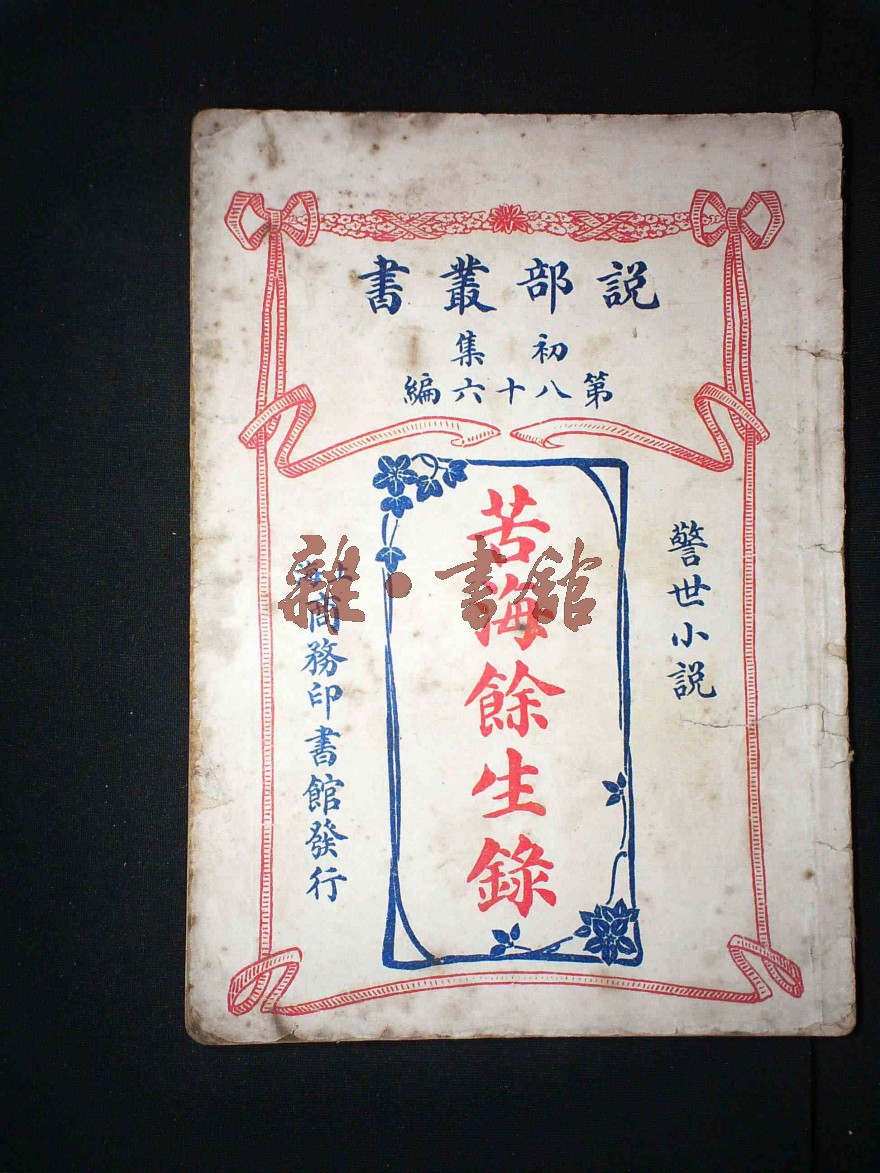 說部叢書
初集
第八十六編
警世小說
苦海餘生錄
上海商務印書館發行
雜·書館